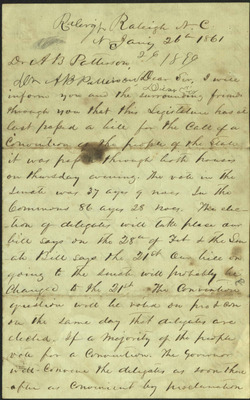 Raleigh N. C
Jany 26th 1861
Dr. A B Patterson,
Dr A B Patterson Dear Sir, I will
Dear Sir
inform you and the surrounding friends
through you that this Legislature has at
last passed a bill for the Call of a
Convention of the people of the State
it was passed through both houses
on thursday evening. The vote in the
Senate was 37 ayes 9 noes In the
Commons 86 ayes 28 noes. The elec
tion of delegates will take place our
bill says on the 28th of Feb & the Sen
ate Bill says the 21st Our bill on
going to the Senate will probably be
Changed to the 21st. The Convention
question will be voted on
on the same day that delegates are
elected. If a majority of the people
vote for a Convention. The Governor
will Convene the delegates as soon there
after as Convenient by proclamation